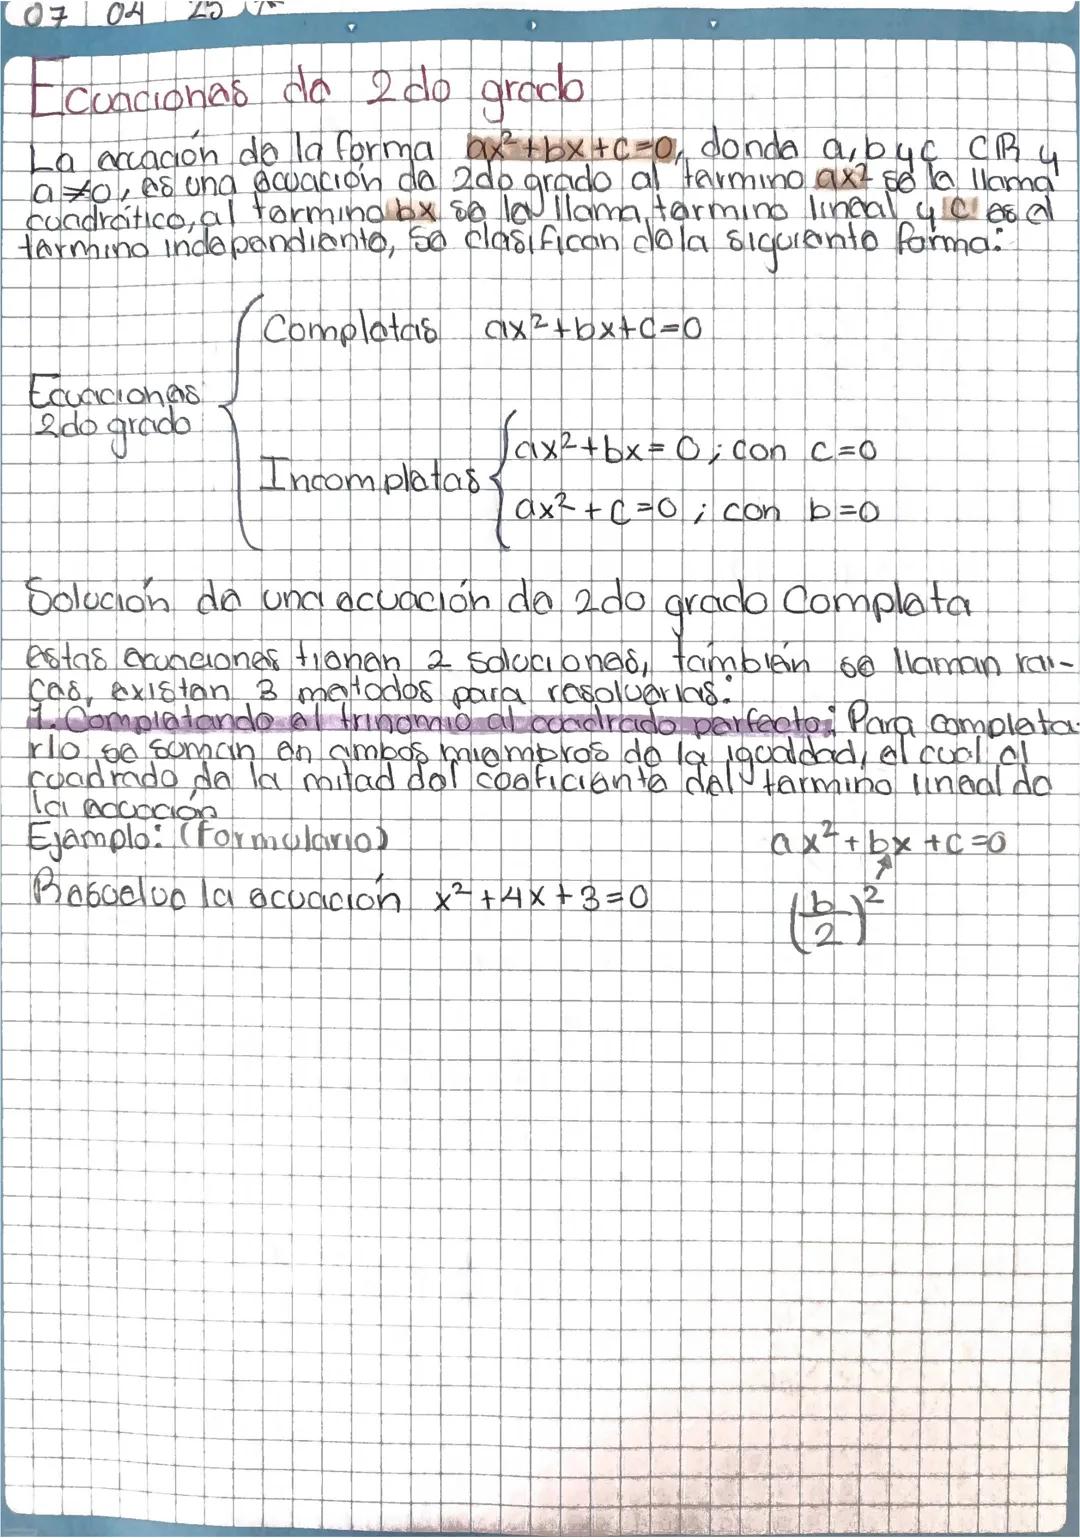 07 04 25
Ecuaciones de 2do grado
La ecuación de la forma ax²+bx+c=0, donde a,b y c ∈ ℝ y
a≠0, es una ecuación de 2do grado al termino ax² se la llama
cuadrático, al termino bx se le llama termino lineal y c es el
termino independiente, se clasifican de la siguiente forma:
Completas ax²+bx+c=0
Ecuaciones
2do grado
ax²+bx=0; con c=0
Incompletas
ax²+c=0; con b=0
Solución de una ecuación de 2do grado Completa
estas ecuaciones tienen 2 soluciones, también se llaman rai-
ces, existen 3 metodos para resolverlas:
1. Completando el trinomio al cuadrado perfecto: Para completa
rlo se suman en ambos miembros de la igualdad, el cual al
cuadrado de la mitad del coeficiente del termino lineal de
la ecuación
Ejemplo: (Formulario) ax²+bx+c=0
Resuelve la ecuación x²+4x+3=0 (b/2)²